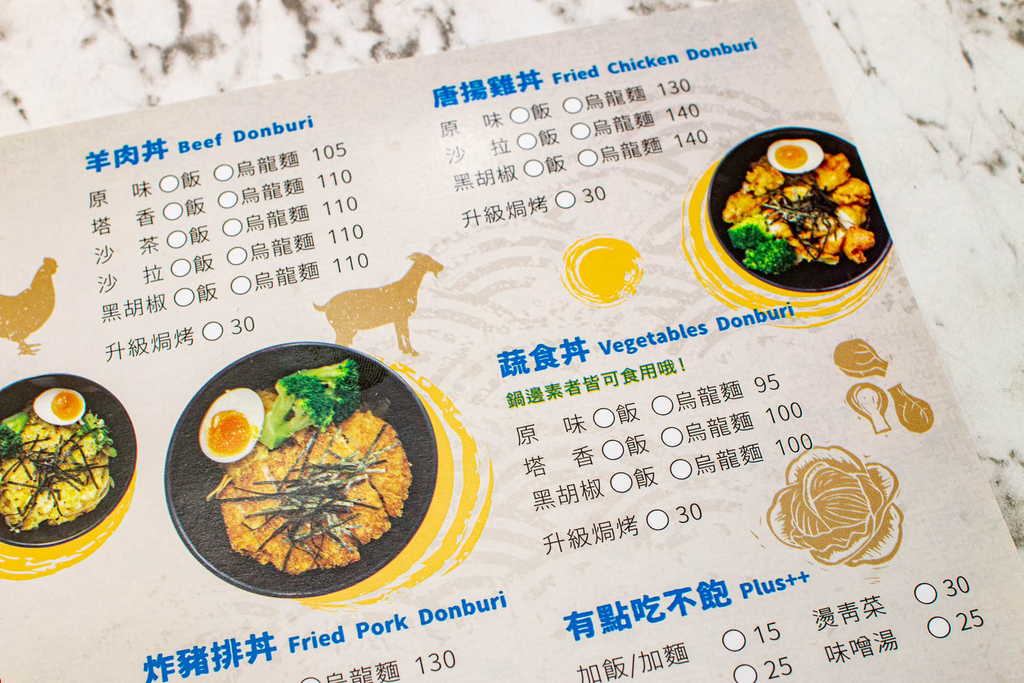 羊肉丼 Beef Donburi
原 味 飯 烏龍麵 105
塔 香 飯 烏龍麵 110
沙 茶 飯 烏龍麵 110
沙 拉 飯 烏龍麵 110
黑胡椒 飯 烏龍麵 110
升級焗烤 30
唐揚雞丼 Fried Chicken Donburi
原 味 飯 烏龍麵 130
沙 拉 飯 烏龍麵 140
黑胡椒 飯 烏龍麵 140
升級焗烤 30
蔬食丼 Vegetables Donburi
鍋邊素者皆可食用哦!
原 味 飯 烏龍麵 95
塔 香 飯 烏龍麵 100
黑胡椒 飯 烏龍麵 100
升級焗烤 30
炸豬排丼 Fried Pork Donburi
烏龍麵 130
有點吃不飽 Plus++
加飯/加麵 15
25
燙青菜 30
味噌湯 25